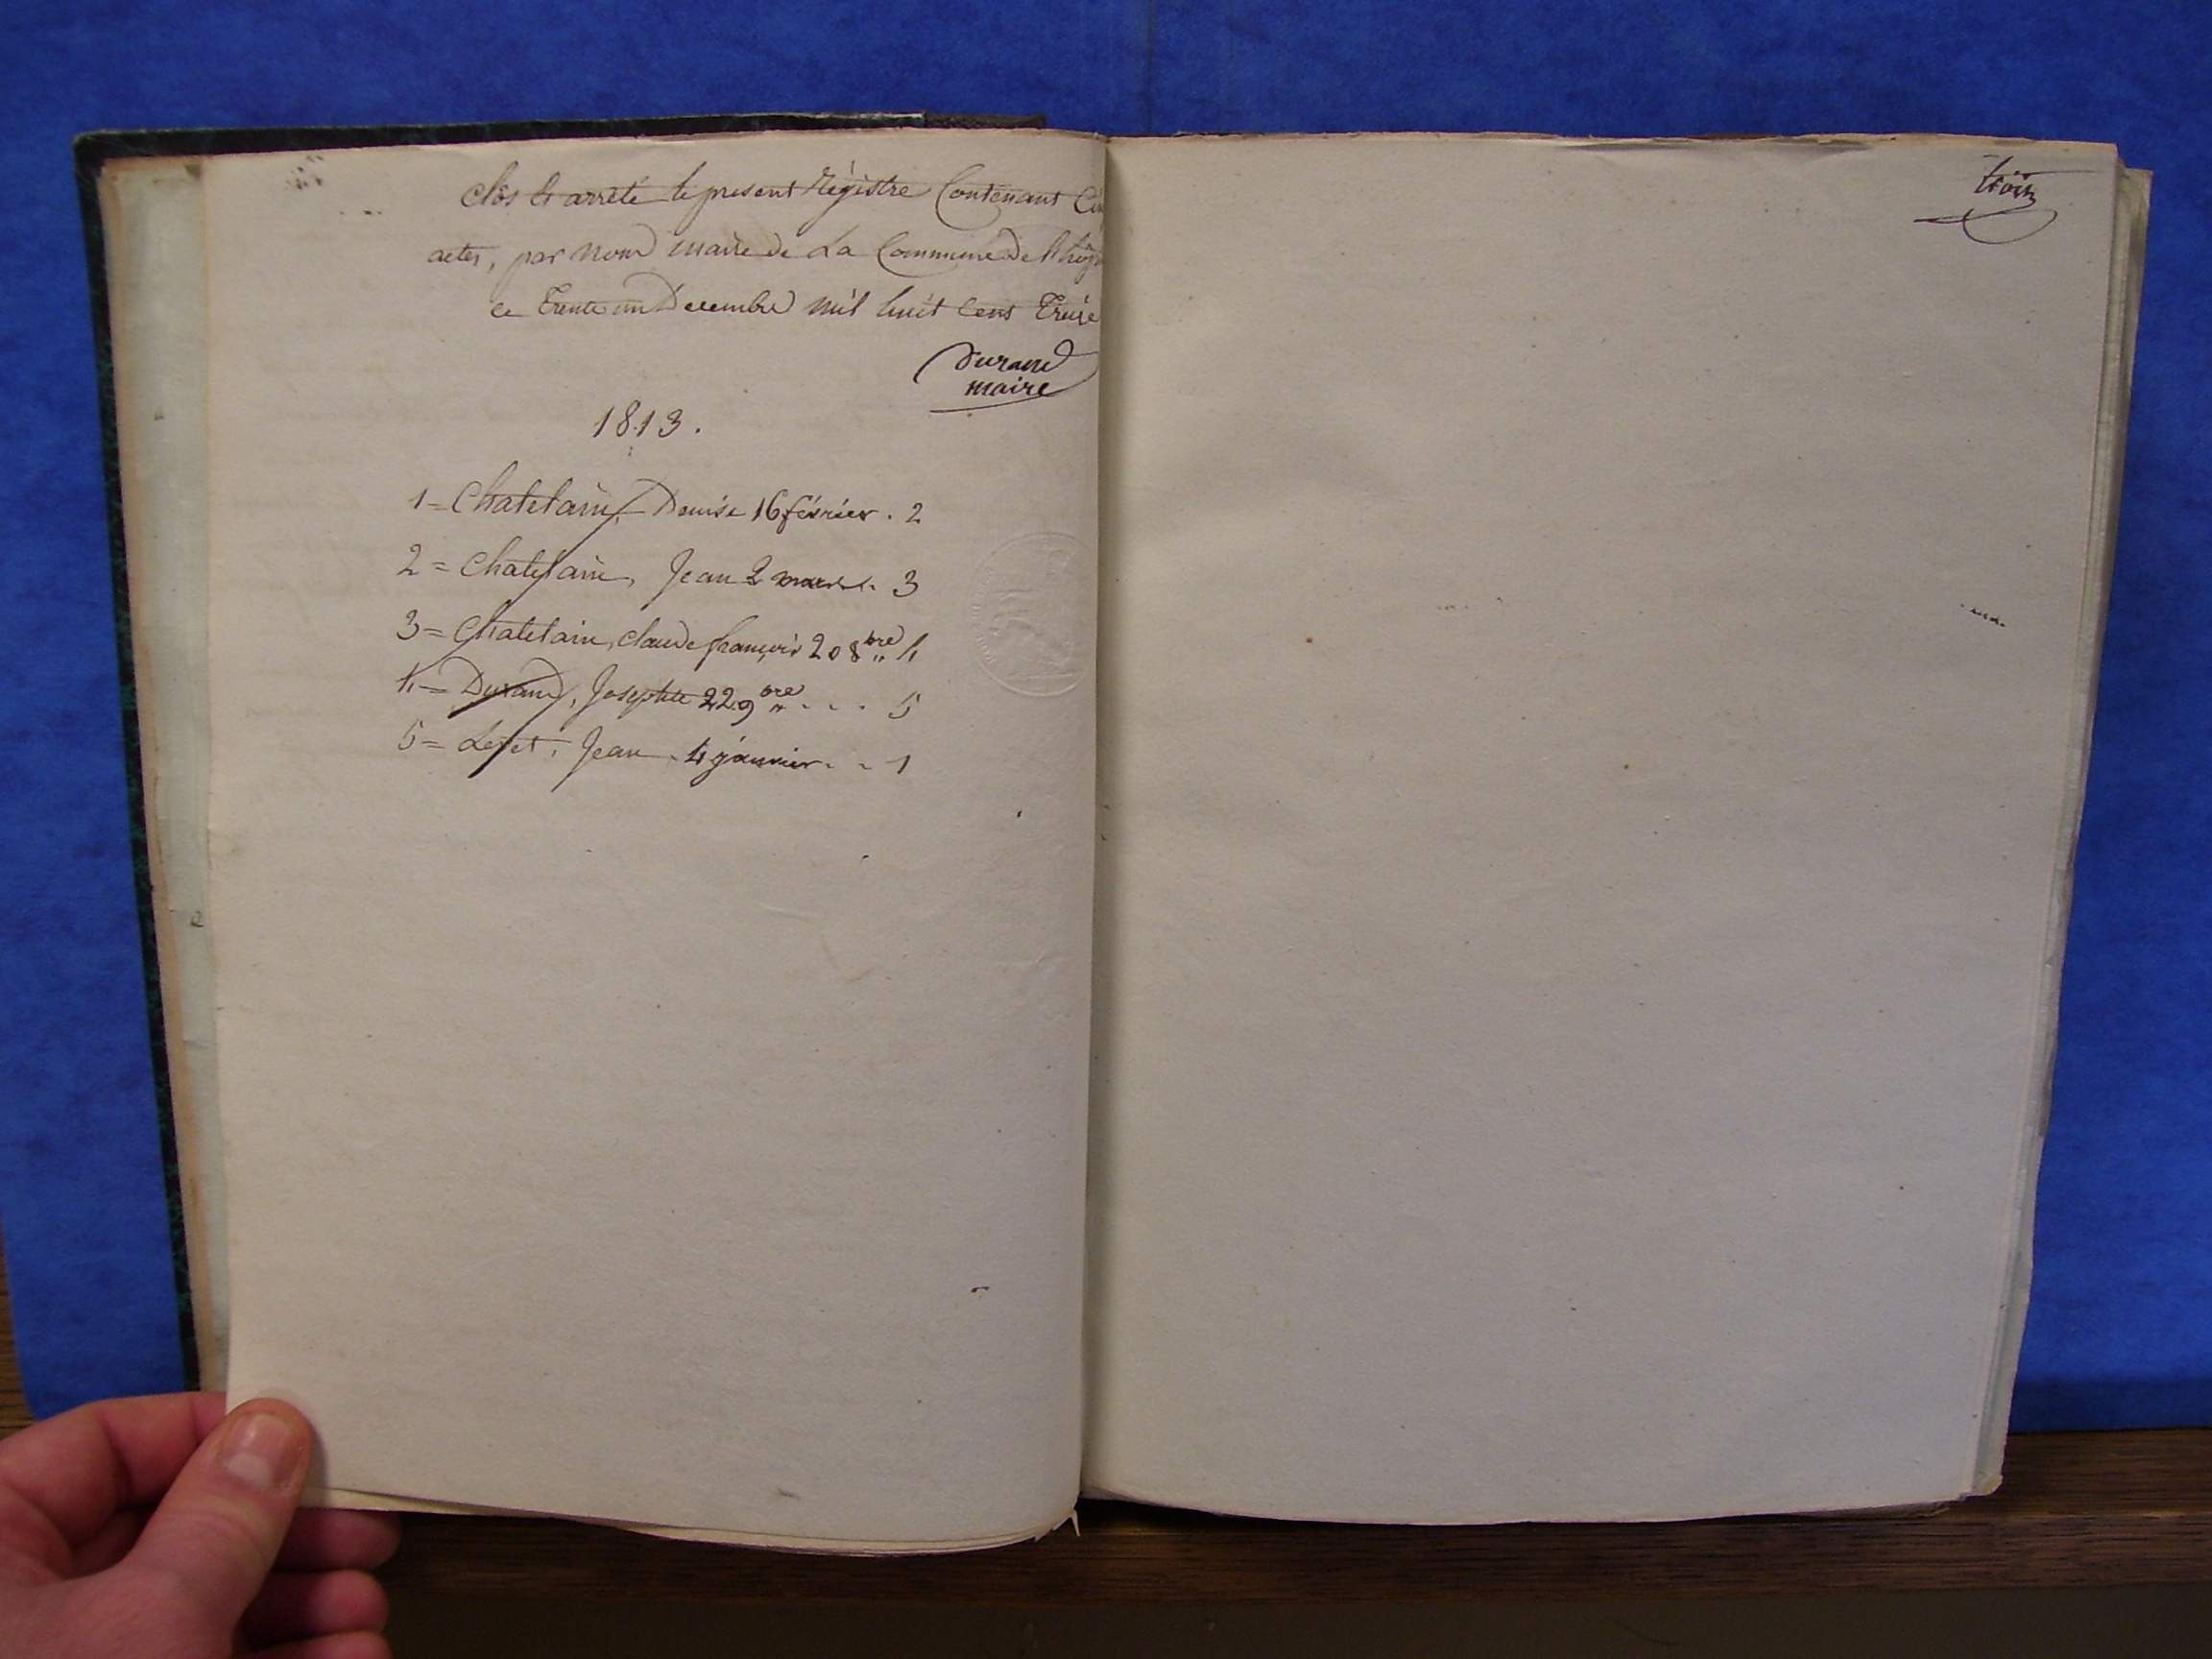 clos & arrêté le present Régistre Contenant
actes, par nous maire de La Commune de
ce Trente un Decembre mil huit cens Treize
Durand
maire
1813.
1 = Chatelain, Denise 16 février . 2
2 = Chatelain, Jean 2 mars . 3
3 = Chatelain, claude françois 20 8bre 4
4 = Durand, Josephte 22 9bre . . . 5
5 = Jean . 4 janvier . . 1
trois